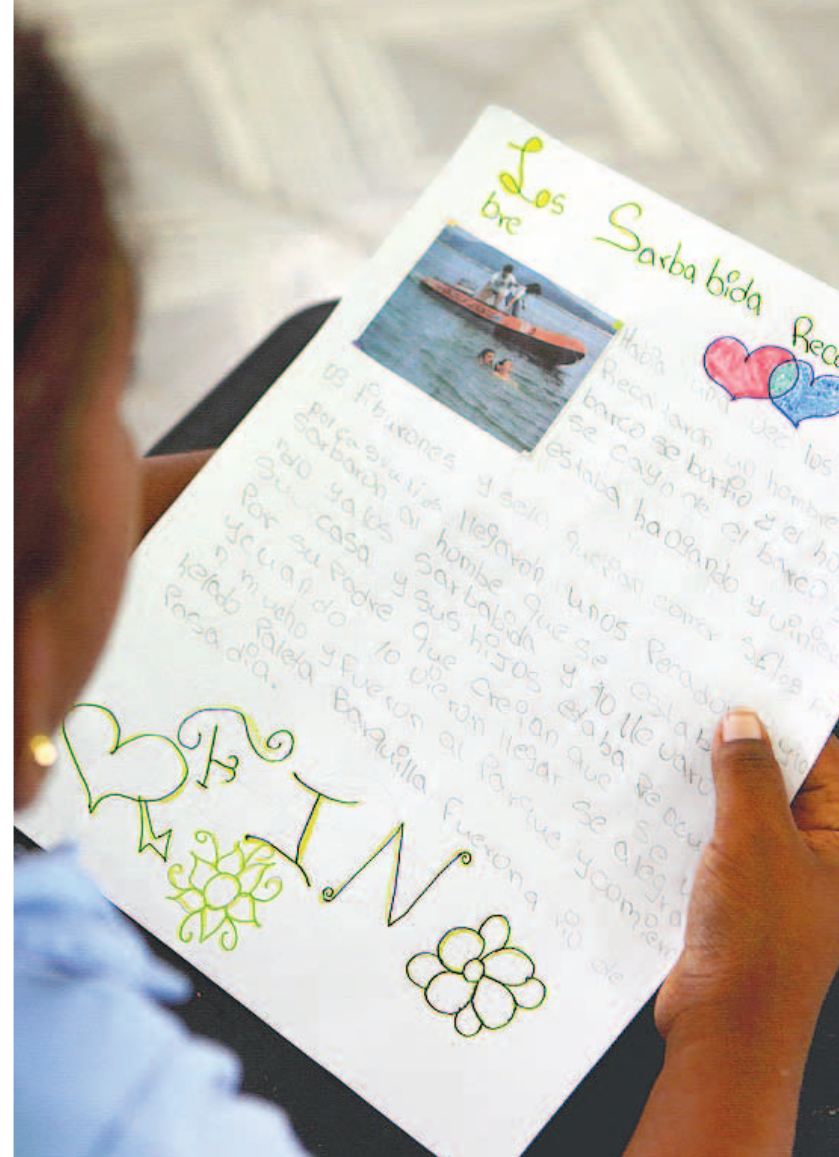 Los Sarbabida Reca
bre
Había una vez los
Recataron un hombre
barco se burtio y el ho
se cayo de el barco
estaba haogando y vinie
os tiburones y se lo querian comer
llegaron unos Pecador
Sarbaron al hombe que se estab
ndo y a los Sarbabida y lo lle varo
Su casa y sus hijos estaba Pe ocu
Por su Padre que creian que se
y cuando lo vieron llegar se alegra
n mucho y fueron al Parque y comiero
helado Paleta Barquilla fueron a Rio de
Pasa dia.
FIN